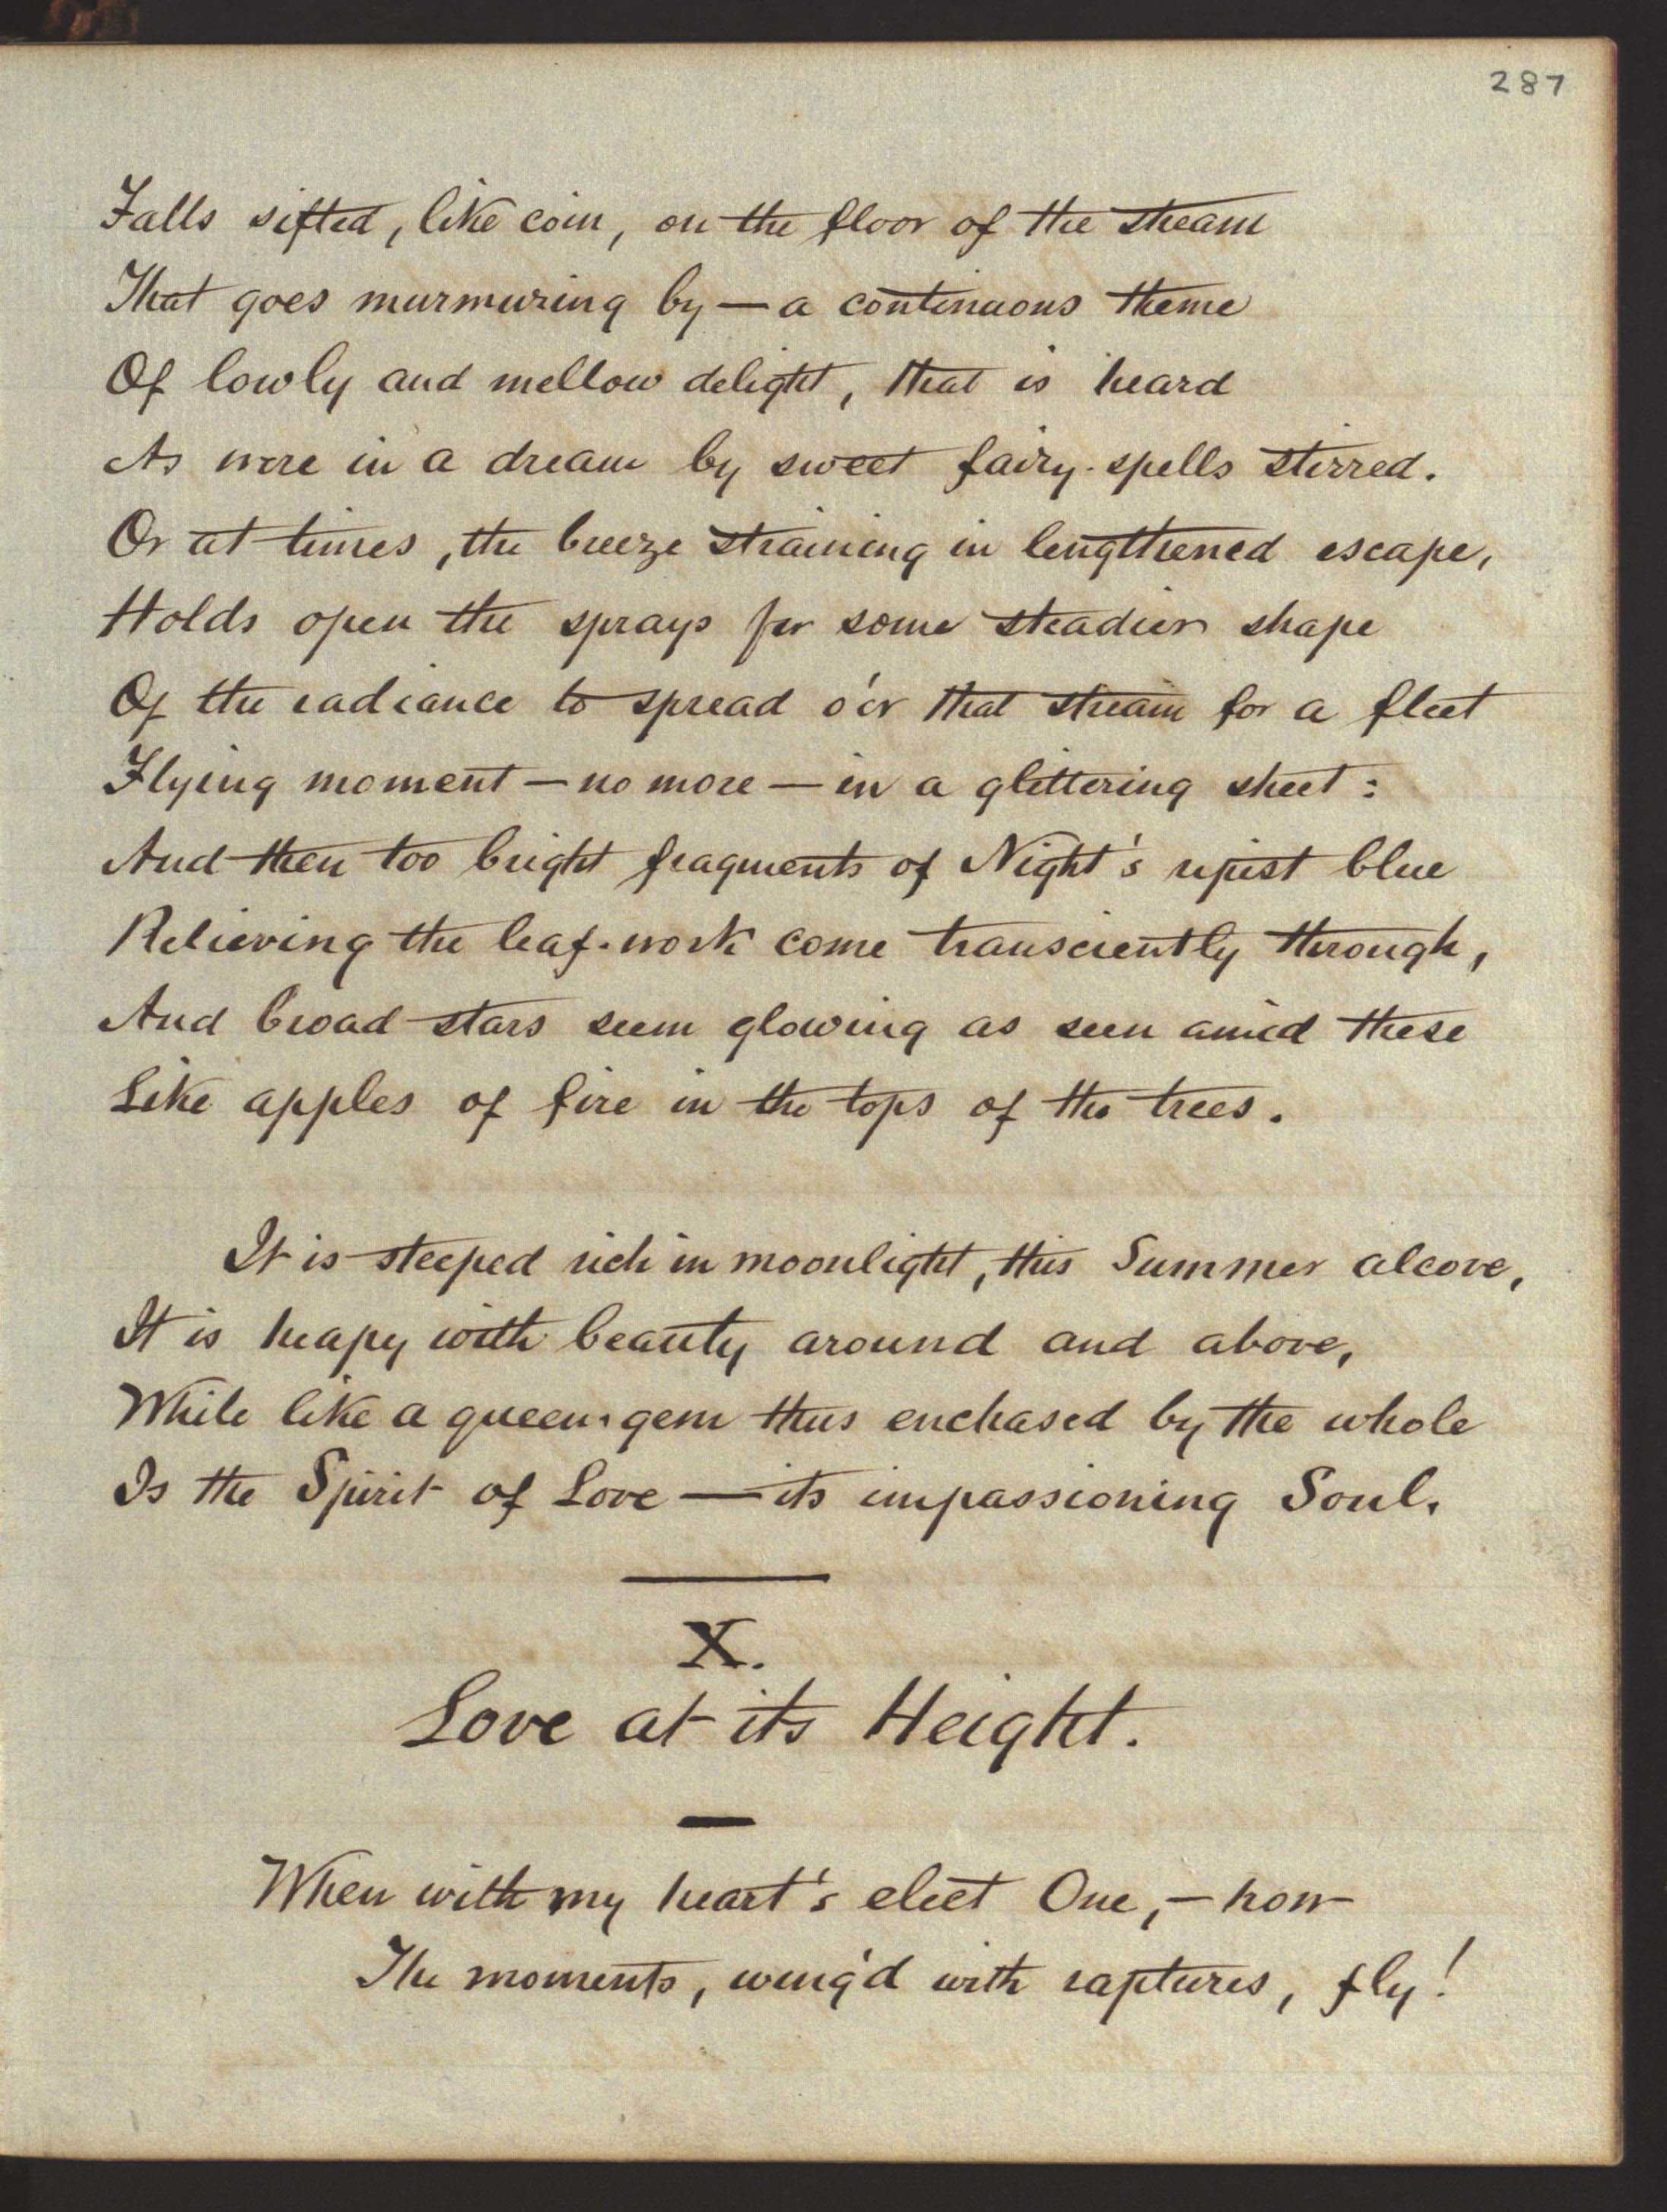 287
Falls sifted, like coin, on the floor of the stream
That goes murmuring by — a continuous theme
Of lowly and mellow delight, that is heard
As were in a dream by sweet fairy-spells stirred.
Or at times, the breeze straining in lengthened escape,
Holds open the sprays for some steadier shape
Of the radiance to spread o'er that stream for a fleet
Flying moment — no more — in a glittering sheet:
And then too bright fragments of Night's ripest blue
Relieving the leaf-work come transciently through,
And broad stars seem glowing as seen amid these
Like apples of fire in the tops of the trees.
It is steeped rich in moonlight, this Summer alcove,
It is heapy with beauty around and above,
While like a queen-gem thus enchased by the whole
Is the Spirit of Love — its impassioning Soul.
X.
Love at its Height.
When with my heart's elect One, — how
The moments, wing'd with raptures, fly!